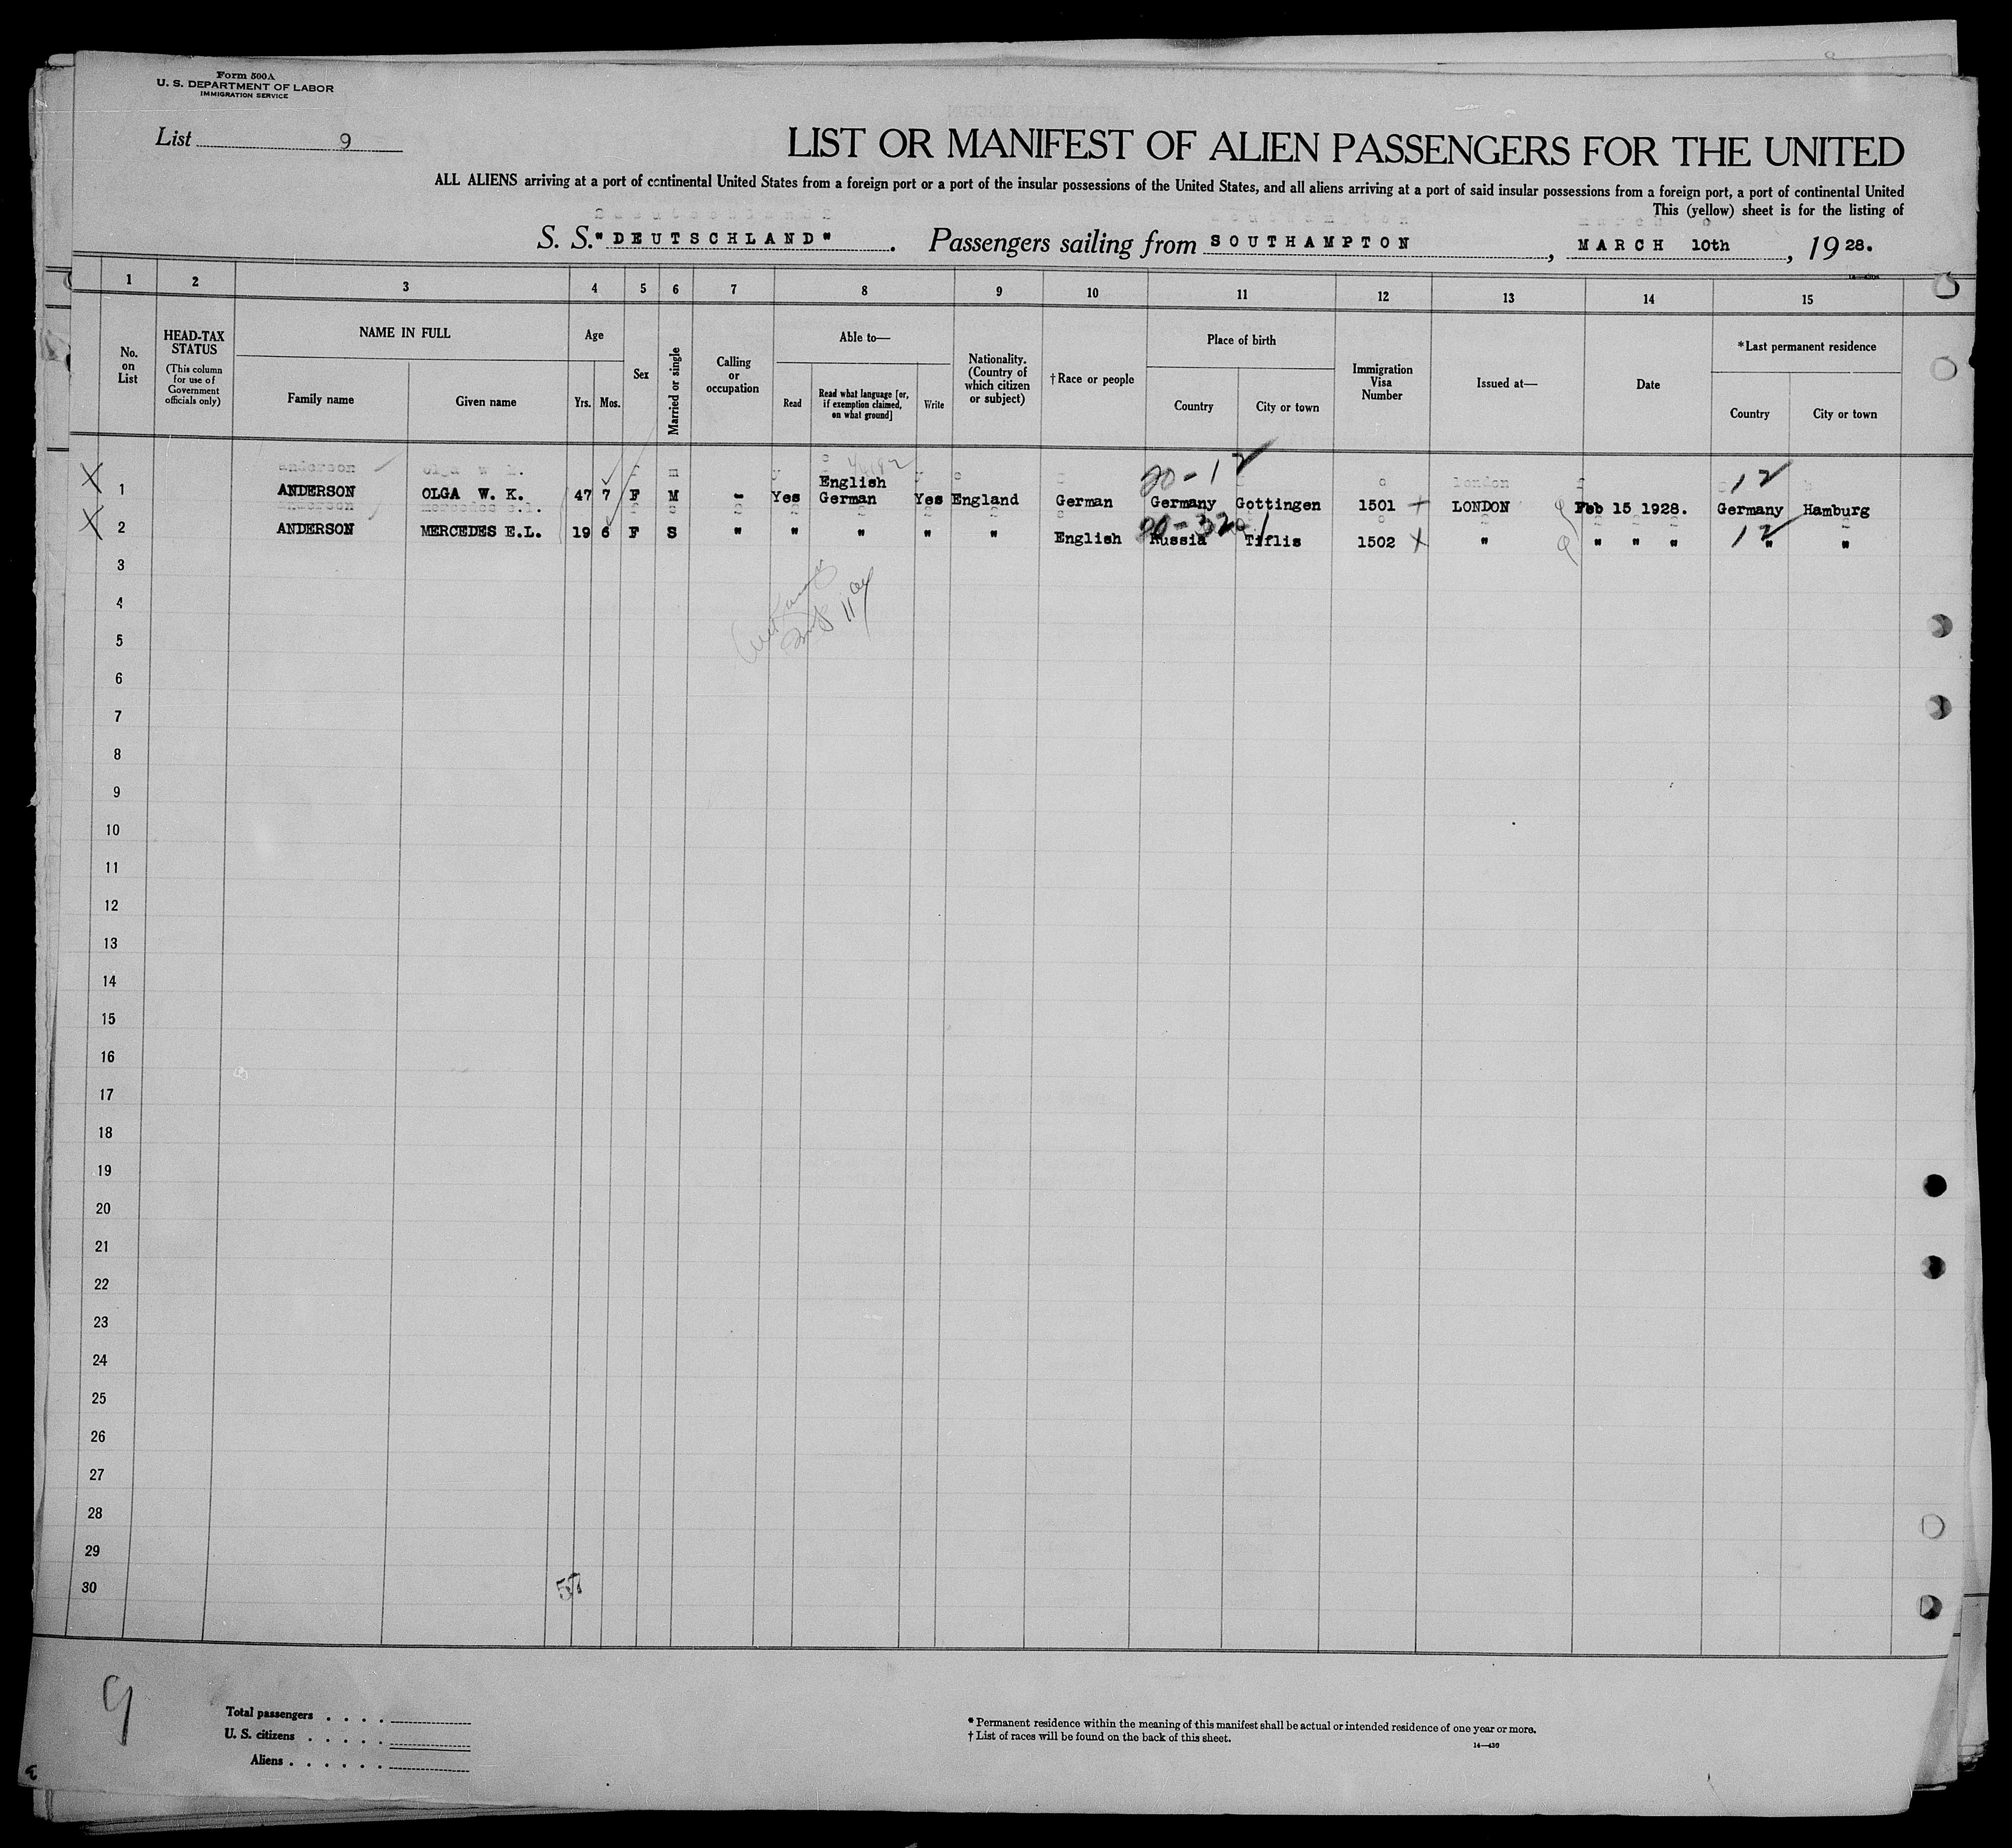 Form 500A
U. S. DEPARTMENT OF LABOR
IMMIGRATION SERVICE
List 9
LIST OR MANIFEST OF ALIEN PASSENGERS FOR THE UNITED
ALL ALIENS arriving at a port of continental United States from a foreign port or a port of the insular possessions of the United States, and all aliens arriving at a port of said insular possessions from a foreign port, a port of continental United
This (yellow) sheet is for the listing of
S. S. "DEUTSCHLAND". Passengers sailing from SOUTHAMPTON, MARCH 10th, 1928.
1 2 3 4 5 6 7 8 9 10 11 12 13 14 15
No. on List
HEAD-TAX STATUS
(This column for use of Government officials only)
NAME IN FULL
Family name
Given name
Age
Yrs. Mos.
Sex
Married or single
Calling or occupation
Able to—
Read
Read what language [or, if exemption claimed, on what ground]
Write
Nationality. (Country of which citizen or subject)
†Race or people
Place of birth
Country
City or town
Immigration Visa Number
Issued at—
Date
*Last permanent residence
Country
City or town
20-12 12
X 1 ANDERSON OLGA W. K. 47 7 F M - Yes English German Yes England German Germany Gottingen 1501 LONDON Feb 15 1928. Germany Hamburg
X 2 ANDERSON MERCEDES E.L. 19 6 F S " " " " " English Russia Tiflis 1502 X " " " " 12 " "
3
4
5
6
7
8
9
10
11
12
13
14
15
16
17
18
19
20
21
22
23
24
25
26
27
28
29
30
57
9
Total passengers . . . .
U. S. citizens . . . . .
Aliens . . . . . .
* Permanent residence within the meaning of this manifest shall be actual or intended residence of one year or more.
† List of races will be found on the back of this sheet.
14—430